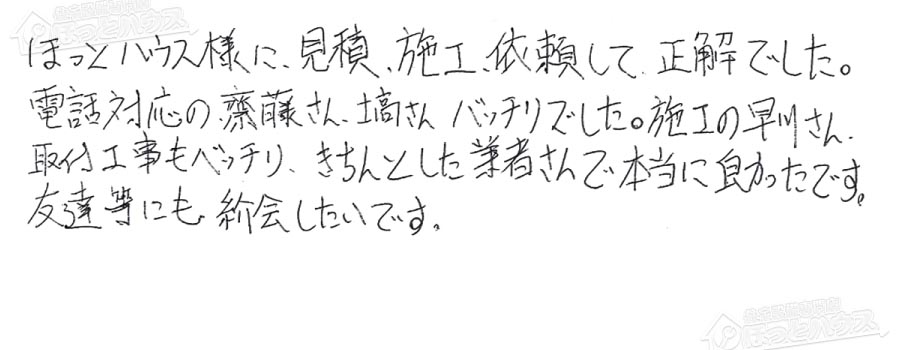 ほっとハウス様に、見積、施工、依頼して、正解でした。
電話対応の齋藤さん、塙さん バッチリでした。施工の早川さん、
取付工事もバッチリ、きちんとした業者さんで本当に良かったです。
友達等にも紹会したいです。
ほっとハウス
ほっとハウス